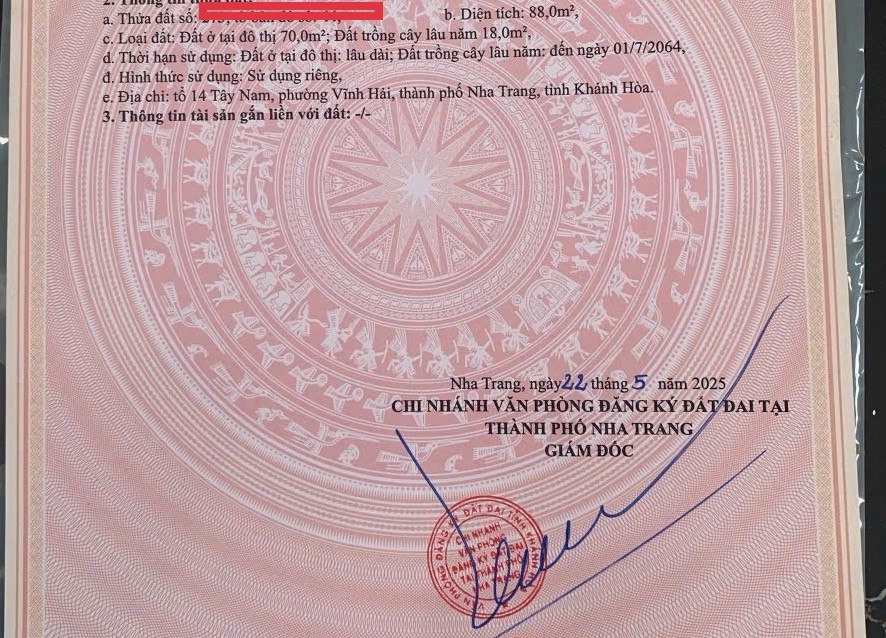 2. Thông tin thửa đất:
a. Thửa đất số: b. Diện tích: 88,0m²,
c. Loại đất: Đất ở tại đô thị 70,0m²; Đất trồng cây lâu năm 18,0m²,
d. Thời hạn sử dụng: Đất ở tại đô thị: lâu dài; Đất trồng cây lâu năm: đến ngày 01/7/2064,
đ. Hình thức sử dụng: Sử dụng riêng,
e. Địa chỉ: tổ 14 Tây Nam, phường Vĩnh Hải, thành phố Nha Trang, tỉnh Khánh Hòa.
3. Thông tin tài sản gắn liền với đất: -/-
Nha Trang, ngày 22 tháng 5 năm 2025
CHI NHÁNH VĂN PHÒNG ĐĂNG KÝ ĐẤT ĐAI TẠI
THÀNH PHỐ NHA TRANG
GIÁM ĐỐC
VĂN PHÒNG ĐĂNG KÝ ĐẤT ĐAI TỈNH KHÁNH HÒA
CHI NHÁNH
VĂN PHÒNG
ĐĂNG KÝ ĐẤT ĐAI
TẠI THÀNH PHỐ
NHA TRANG